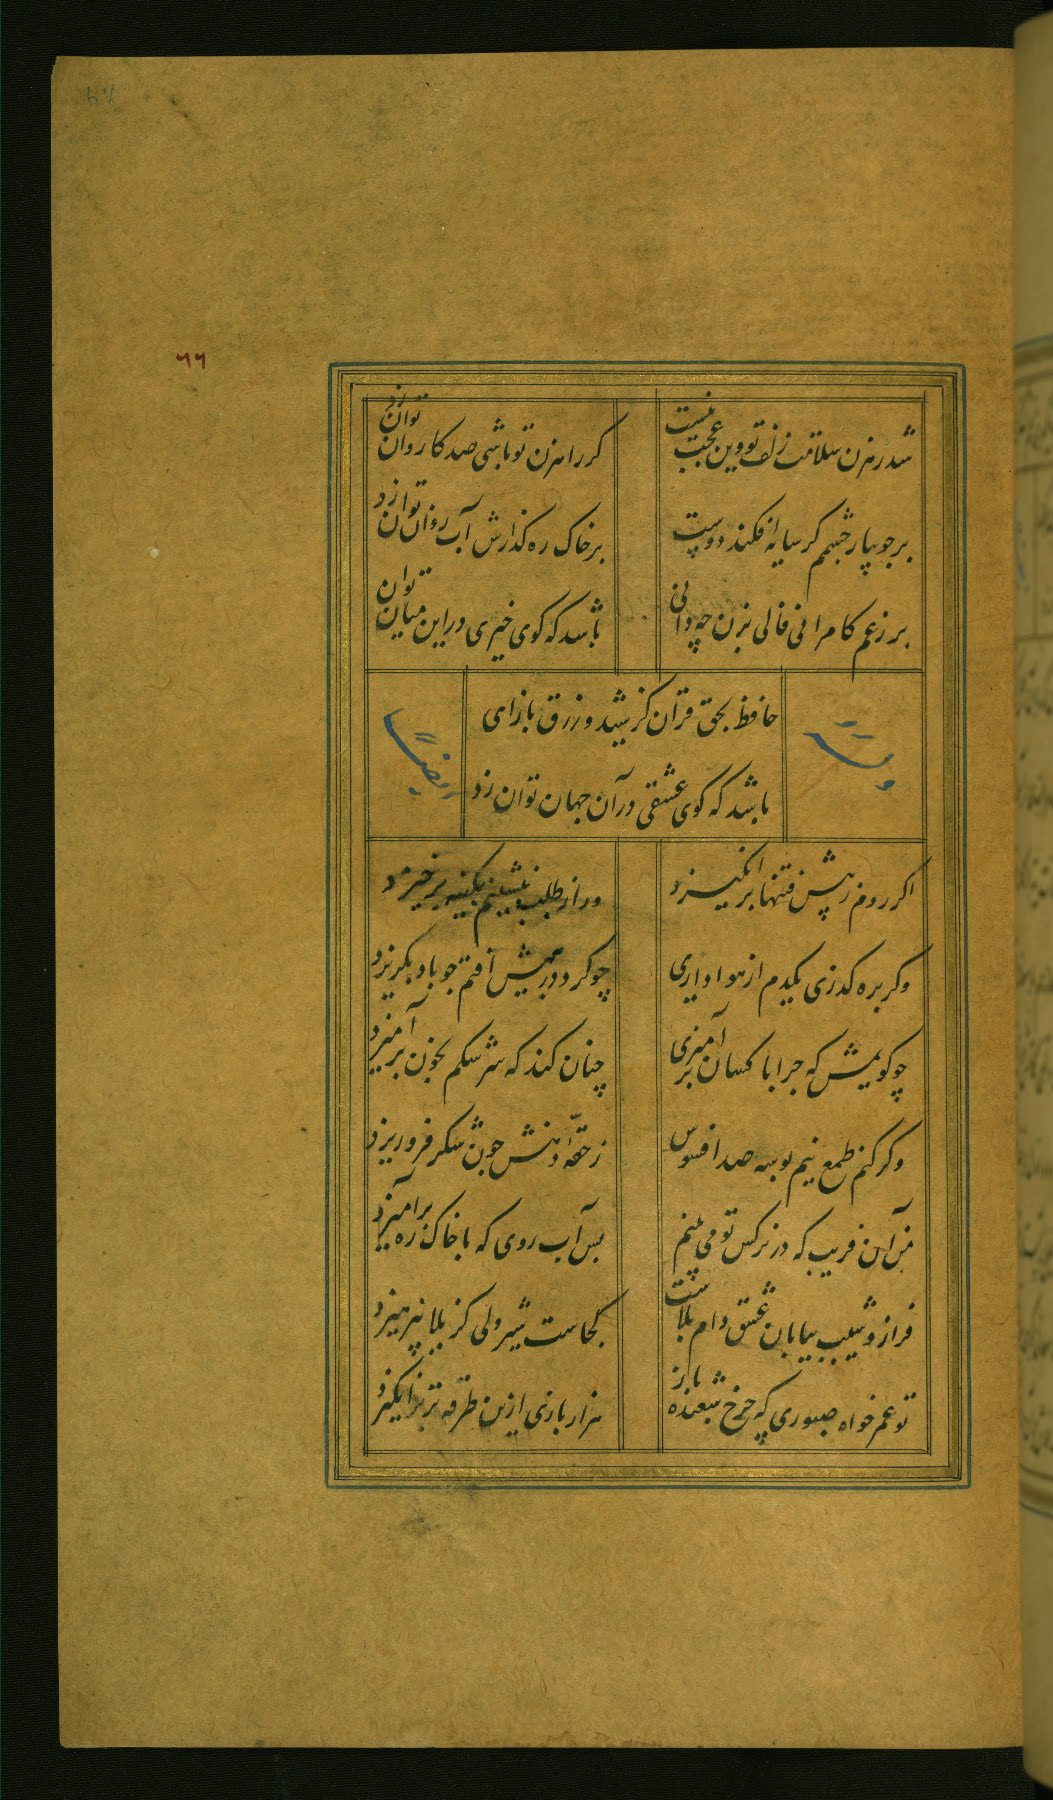 ٦٦
شد رهزن سلامت زلف تو وین عجب نیست
کر راهزن تو باشی صد کاروان توان زد
بر جویبار چشمم کر سایه افکند دوست
بر خاک ره کذارش آب روان توان زد
بر زعم کامرانی فالی بزن چه دانی
باشد که کوی خیری در این میان توان
حافظ بحق قران کز شید و زرق باز ای
باشد که کوی عشقی در آن جهان توان زد
وله ایضاً
اکر روم ز پیش فتنها بر انکیزد
ور از طلب بنشینم بکینه بر خیزد
وکر بره کذری یکدم از هواداری
چو کرد در پیش افتم جو باد بکریزد
چو کویمش که جرا با کسان برآمیزی
چنان کند که سرشکم بخون برآمیزد
وکر کنم طمع نیم بوسه صد افسوس
ز حقهٔ دهنش جون شکر فرو ریزد
من آن فریب که در نرکس تو می بینم
بس آب روی که با خاک ره برآمیزد
فراز و شیب بیابان عشق دام بلاست
کجاست شیر دلی کز بلا نپرهیزد
تو عمر خواه صبوری که چرخ شعبده باز
هزار بازی ازین طرفه تر بر انکیزد